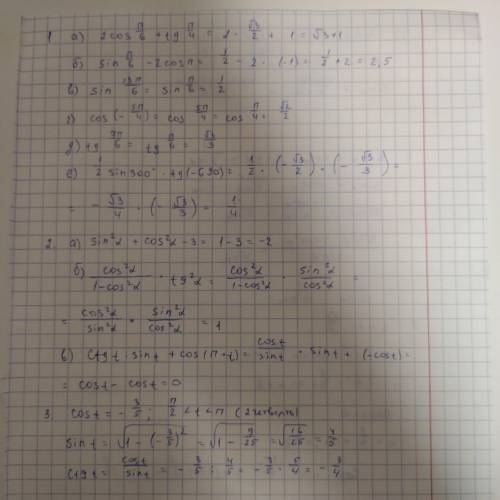 1. а) 2cos π/6 + tg π/4 = 2 · √3/2 + 1 = √3+1
б) sin π/6 - 2cosπ = 1/2 - 2 · (-1) = 1/2 + 2 = 2,5
в) sin 13π/6 = sin π/6 = 1/2
г) cos(-5π/4) = cos 5π/4 = cos π/4 = √2/2
д) tg 7π/6 = tg π/6 = √3/3
е) 1/2 sin300° · tg(-690) = 1/2 · (-√3/2) · (-√3/3) =
= -√3/4 · (-√3/3) = 1/4
2. а) sin²α + cos²α - 3 = 1 - 3 = -2
б) cos²α/(1-cos²α) · tg²α = cos²α/(1-cos²α) · sin²α/cos²α =
= cos²α/sin²α · sin²α/cos²α = 1
в) ctgt · sint + cos(π+t) = cost/sint · sint + (-cost) =
= cost - cost = 0
3. cost = -3/5; π/2 < t < π (2 четверть)
sint = √(1-(-3/5)²) = √(1 - 9/25) = √(16/25) = 4/5
ctgt = cost/sint = -3/5 : 4/5 = -3/5 · 5/4 = -3/4